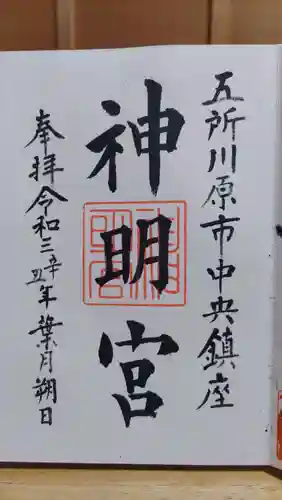 五所川原市中央鎮座
神明宮
奉拝令和三辛丑年葉月朔日